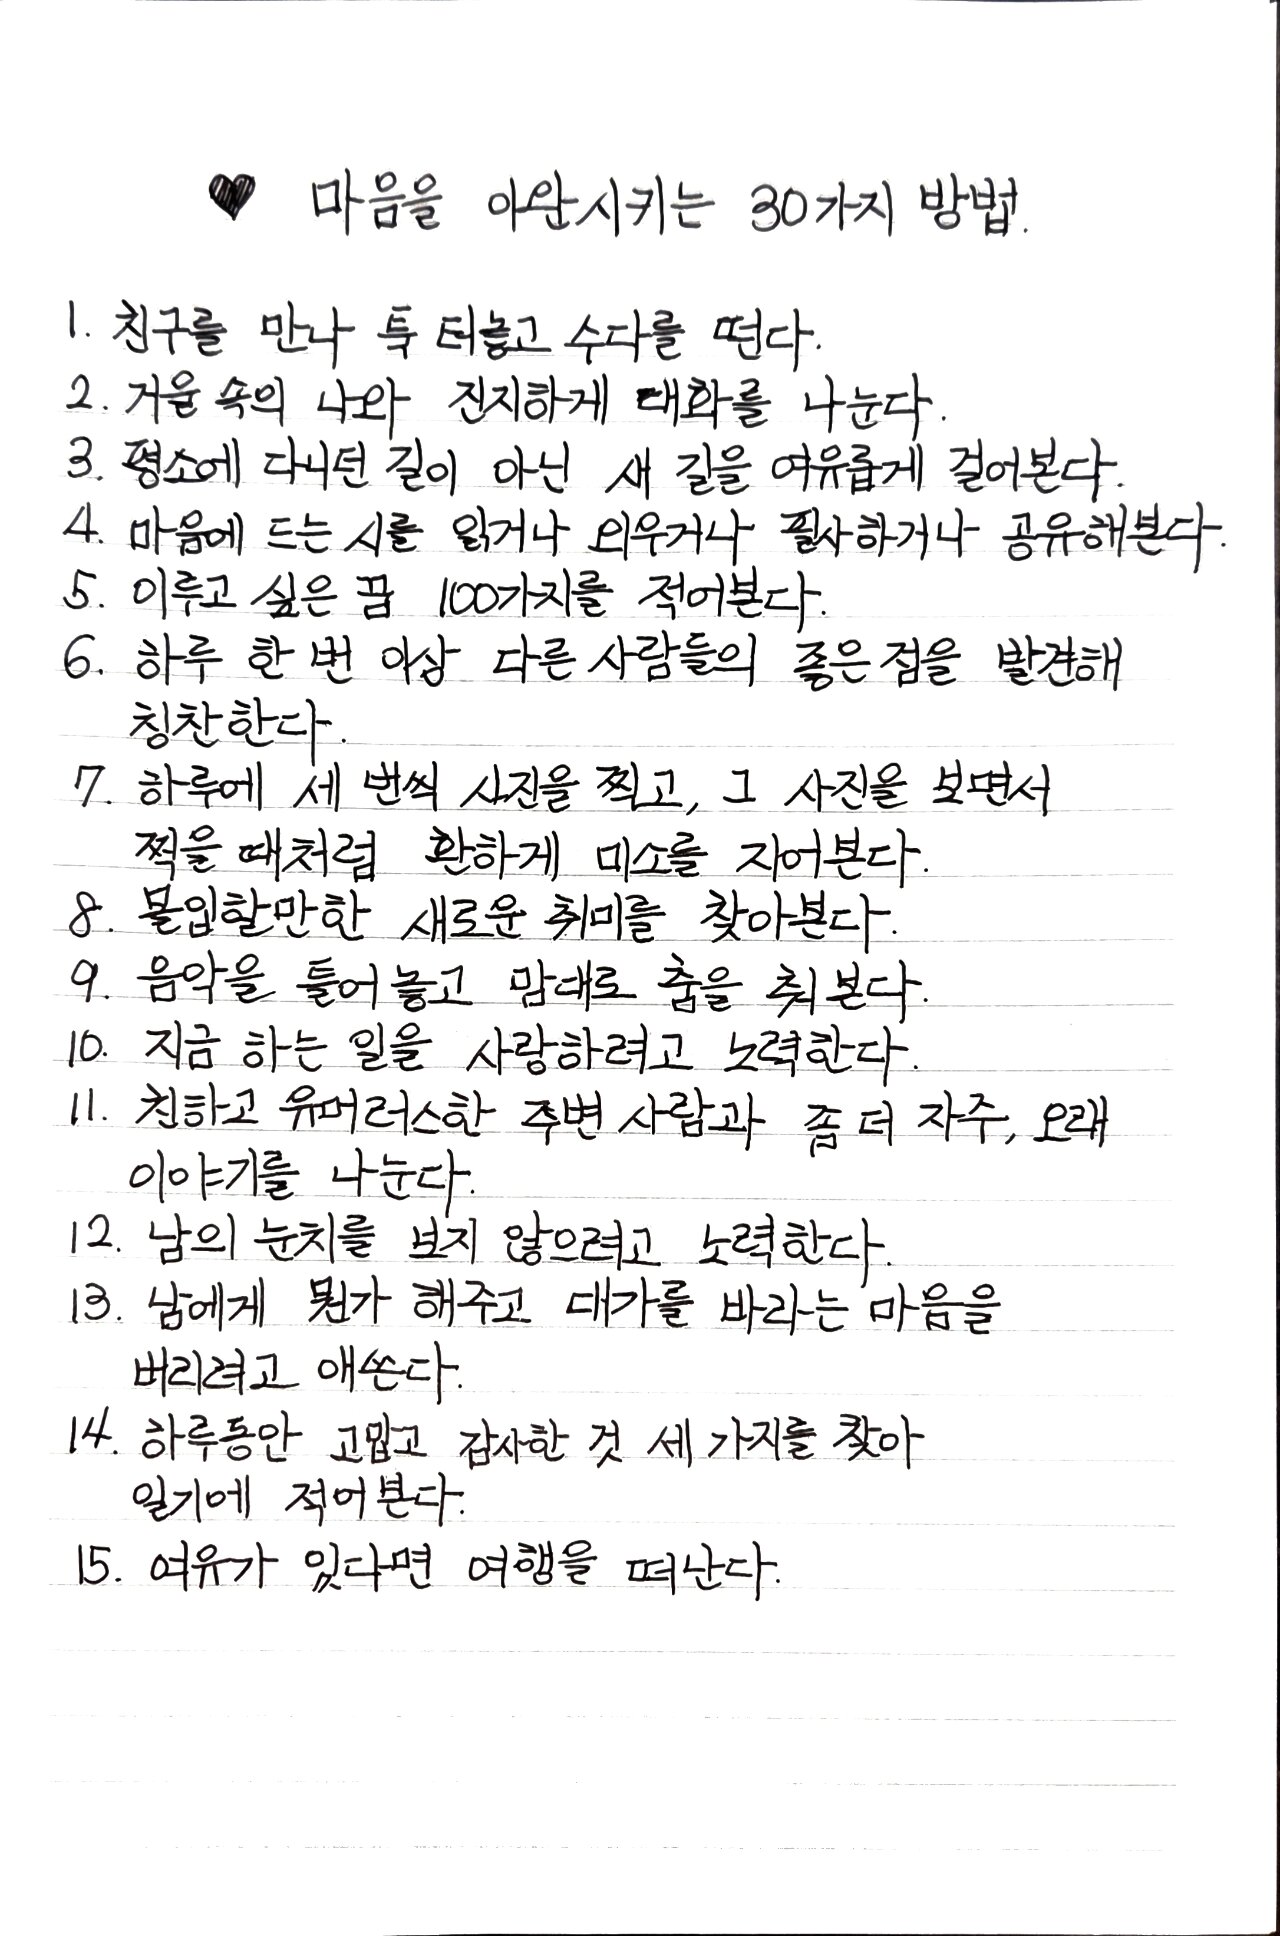 ♥ 마음을 이완시키는 30가지 방법.
1. 친구를 만나 툭 터놓고 수다를 떤다.
2. 거울 속의 나와 진지하게 대화를 나눈다.
3. 평소에 다니던 길이 아닌 새 길을 여유롭게 걸어본다.
4. 마음에 드는 시를 읽거나 외우거나 필사하거나 공유해본다.
5. 이루고 싶은 꿈 100가지를 적어본다.
6. 하루 한 번 이상 다른 사람들의 좋은 점을 발견해
칭찬한다.
7. 하루에 세 번씩 사진을 찍고, 그 사진을 보면서
찍을 때처럼 환하게 미소를 지어본다.
8. 몰입할만한 새로운 취미를 찾아본다.
9. 음악을 틀어놓고 맘대로 춤을 춰본다.
10. 지금 하는 일을 사랑하려고 노력한다.
11. 친하고 유머러스한 주변 사람과 좀 더 자주, 오래
이야기를 나눈다.
12. 남의 눈치를 보지 않으려고 노력한다.
13. 남에게 뭔가 해주고 대가를 바라는 마음을
버리려고 애쓴다.
14. 하루동안 고맙고 감사한 것 세 가지를 찾아
일기에 적어본다.
15. 여유가 있다면 여행을 떠난다.